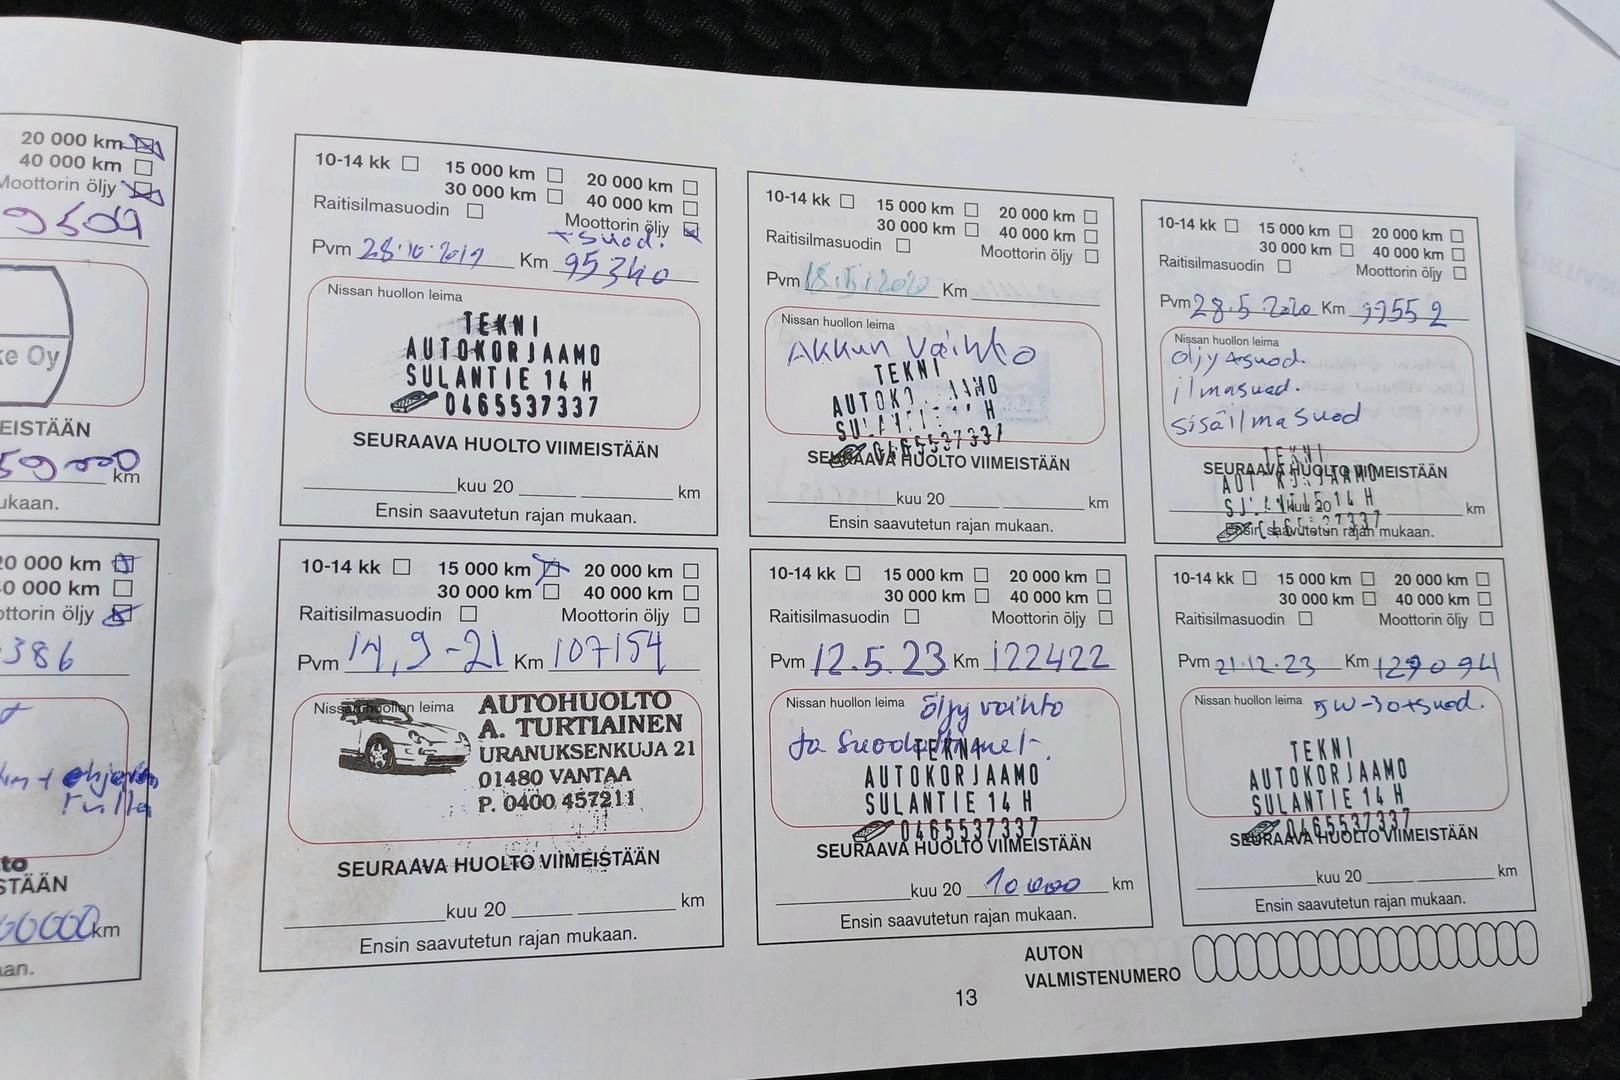 20 000 km
40 000 km
Moottorin öljy
9509
ke Oy
EISTÄÄN
59000 km
ukaan.
20 000 km
40 000 km
ottorin öljy
386
rulla
to
STÄÄN
00000 km
aan.
10-14 kk 15 000 km 20 000 km
30 000 km 40 000 km
Raitisilmasuodin Moottorin öljy
+suod.
Pvm 28.10.2019 Km 95340
Nissan huollon leima
TEKNI
AUTOKORJAAMO
SULANTIE 14 H
0465537337
SEURAAVA HUOLTO VIIMEISTÄÄN
kuu 20 km
Ensin saavutetun rajan mukaan.
10-14 kk 15 000 km 20 000 km
30 000 km 40 000 km
Raitisilmasuodin Moottorin öljy
Pvm 18.5.2020 Km
Nissan huollon leima
Akkun vaihto
TEKNI
AUTOKO AMO
SULANTIE 14 H
0465537337
SEURAAVA HUOLTO VIIMEISTÄÄN
kuu 20 km
Ensin saavutetun rajan mukaan.
10-14 kk 15 000 km 20 000 km
30 000 km 40 000 km
Raitisilmasuodin Moottorin öljy
Pvm 28.5.2020 Km 97552
Nissan huollon leima
öljy+suod.
ilmasuod.
sisäilmasuod
TEKNI
SEURAAVA HUOLTO VIIMEISTÄÄN
AUTOKORJAAMO
SULANTIE 14 H
kuu 20 km
0465537337
Ensin saavutetun rajan mukaan.
10-14 kk 15 000 km 20 000 km
30 000 km 40 000 km
Raitisilmasuodin Moottorin öljy
Pvm 14,9-21 Km 107154
Nissan huollon leima
AUTOHUOLTO
A. TURTIAINEN
URANUKSENKUJA 21
01480 VANTAA
P. 0400 457211
SEURAAVA HUOLTO VIIMEISTÄÄN
kuu 20 km
Ensin saavutetun rajan mukaan.
10-14 kk 15 000 km 20 000 km
30 000 km 40 000 km
Raitisilmasuodin Moottorin öljy
Pvm 12.5.23 Km 122422
Nissan huollon leima öljy vaihto
ja
TEKNI
AUTOKORJAAMO
SULANTIE 14 H
0465537337
SEURAAVA HUOLTO VIIMEISTÄÄN
kuu 20 10000 km
Ensin saavutetun rajan mukaan.
10-14 kk 15 000 km 20 000 km
30 000 km 40 000 km
Raitisilmasuodin Moottorin öljy
Pvm 21.12.23 Km 129094
Nissan huollon leima 5W-30+suod.
TEKNI
AUTOKORJAAMO
SULANTIE 14 H
0465537337
SEURAAVA HUOLTO VIIMEISTÄÄN
kuu 20 km
Ensin saavutetun rajan mukaan.
AUTON
VALMISTENUMERO
13